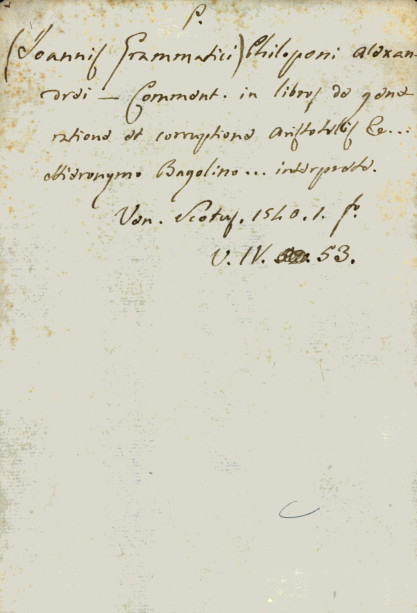 P.
(Joannis Grammatici) Philoponi Alexan-
drei — Comment. in libros de gene
ratione et corruptione Aristotelis &c...
Hieronymo Bagolino... interprete.
Ven. Scotus. 1540. 1. f.º
V. IV. 53.